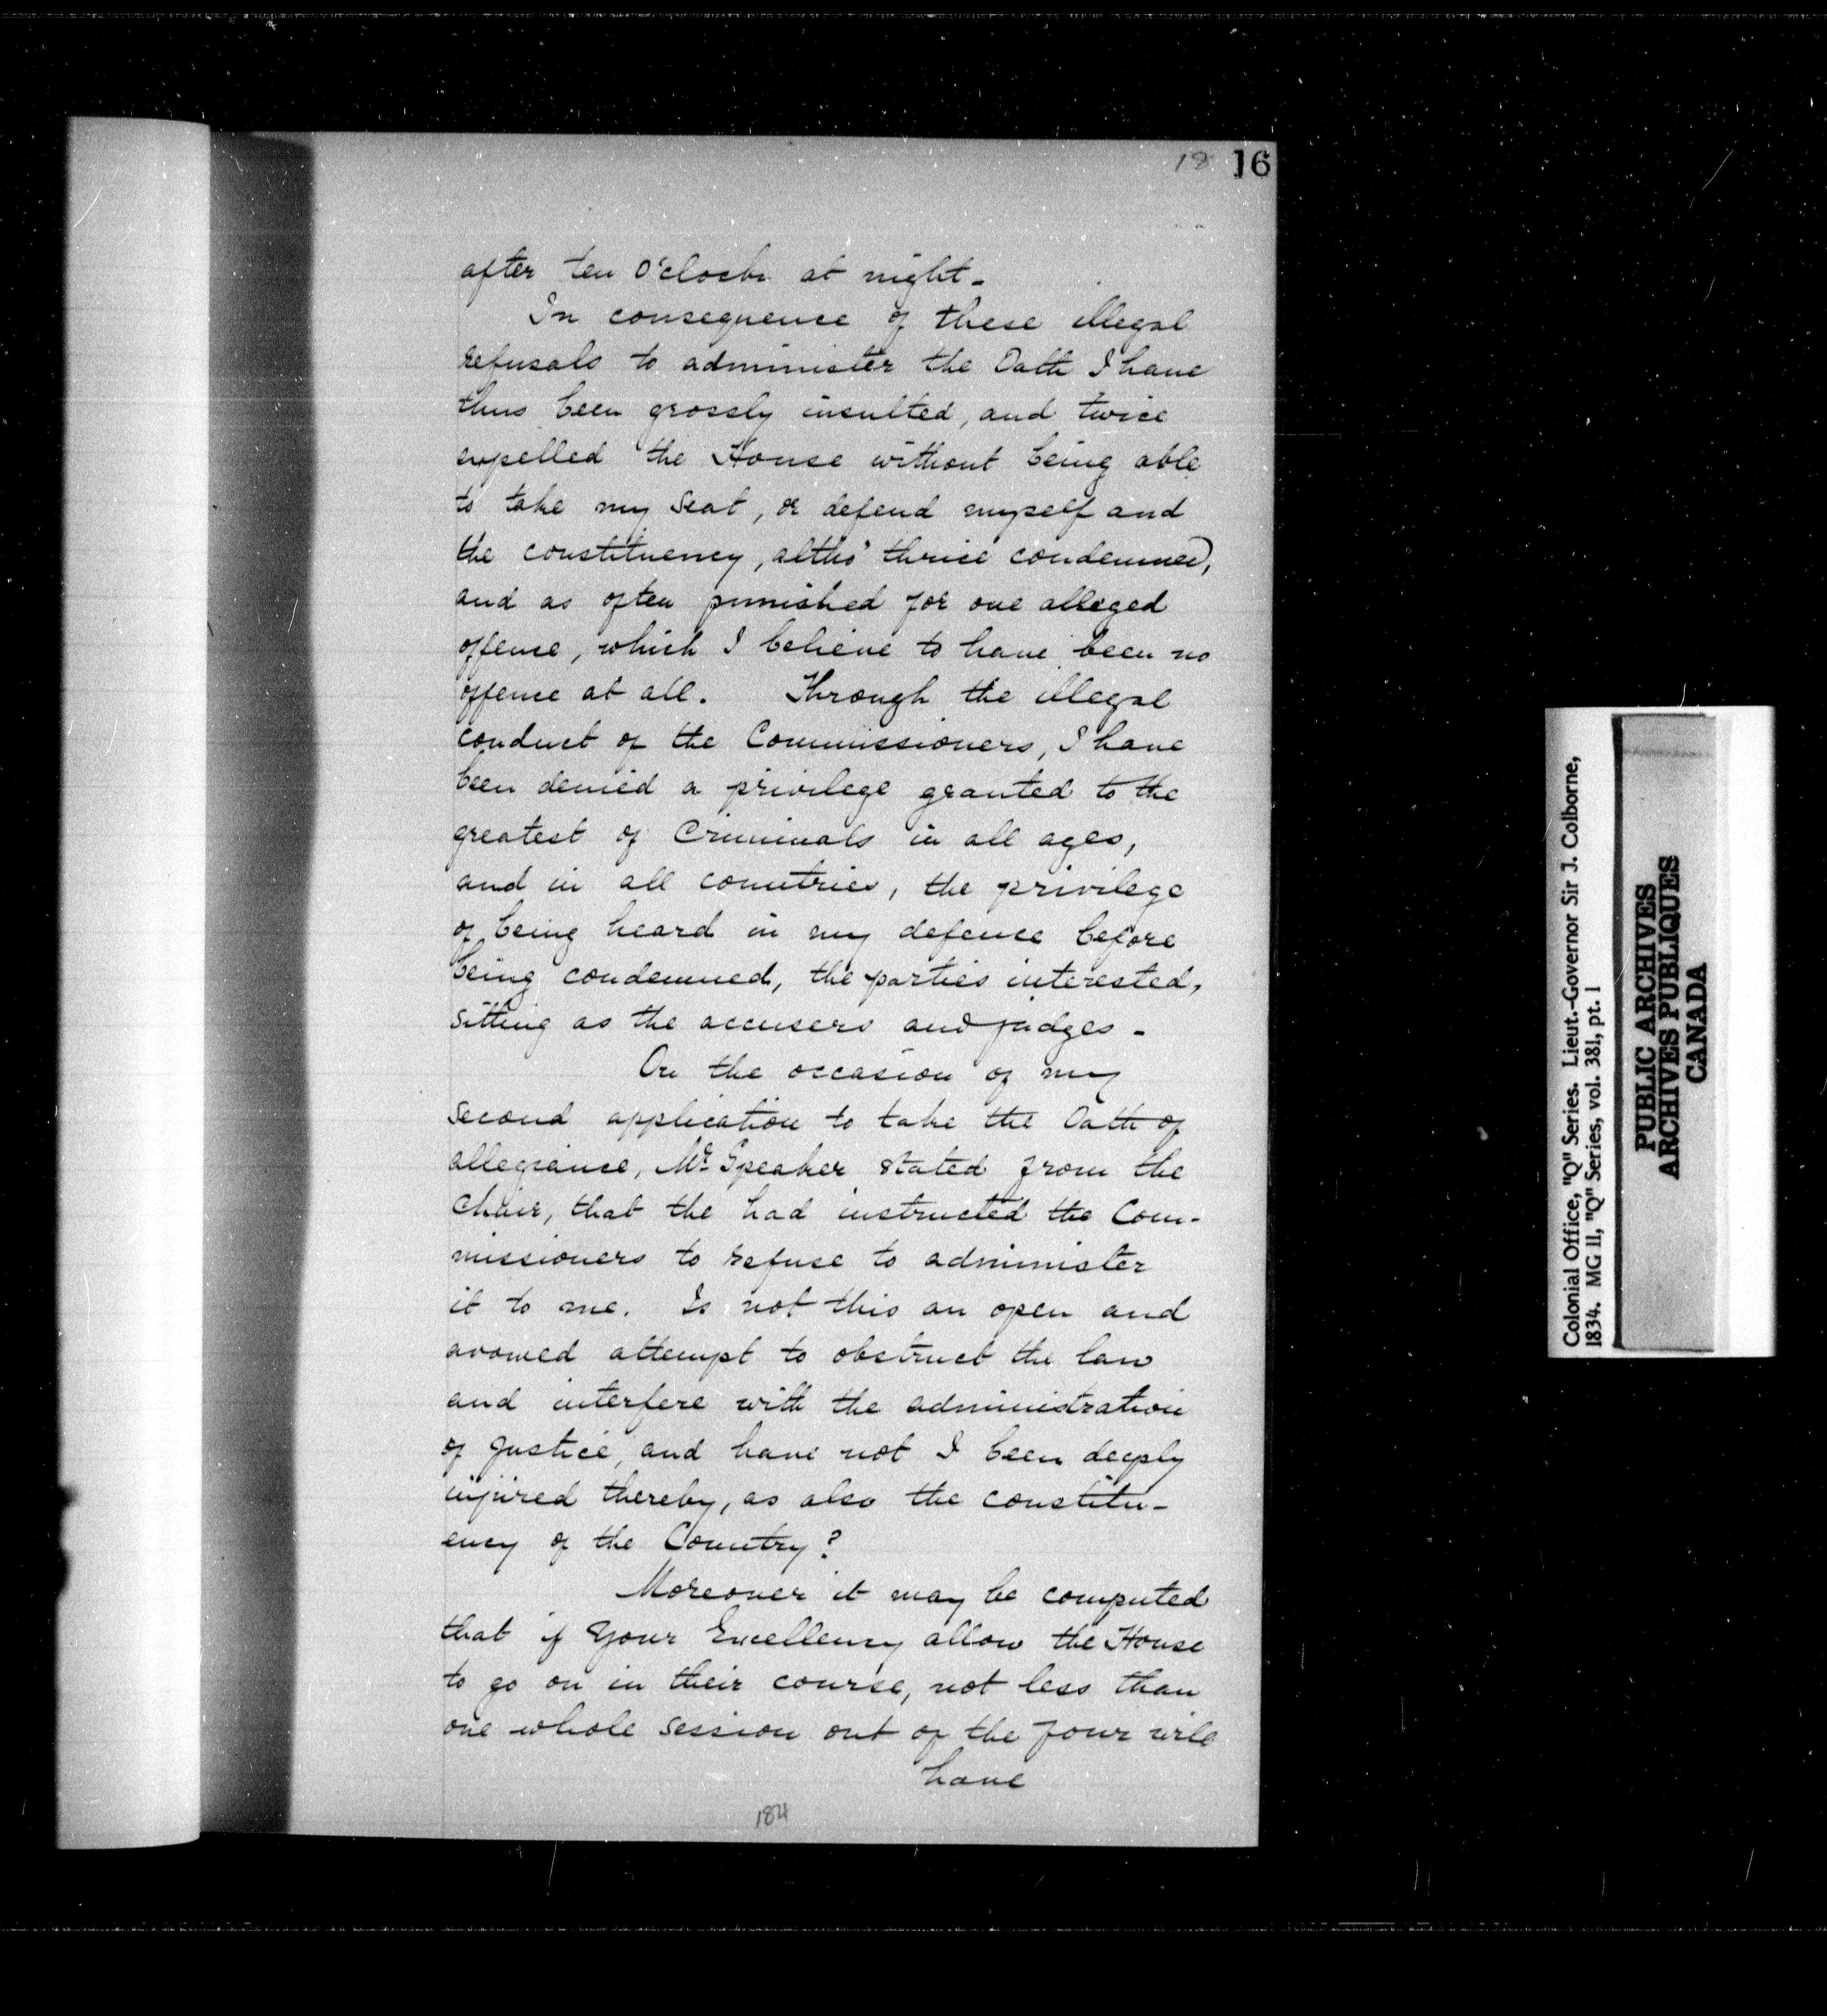 18 16
after ten O'clock at night -
In consequence of these illegal
refusals to administer the Oath I have
thus been grossly insulted, and twice
expelled the House without being able
to take my seat, or defend myself and
the constituency, altho' thrice condemned,
and as often punished for one alleged
offence, which I believe to have been no
offence at all. Through the illegal
conduct of the Commissioners, I have
been denied a privilege granted to the
greatest of Criminals in all ages,
and in all countries, the privilege
of being heard in my defence before
being condemned, the parties interested,
sitting as the accusers and judges -
On the occasion of my
second application to take the Oath of
allegiance, Mr. Speaker stated from the
Chair, that the had instructed the Com-
missioners to refuse to administer
it to me. Is not this an open and
avowed attempt to obstruct the law
and interfere with the administration
of Justice, and have not I been deeply
injured thereby, as also the constitu-
ency of the Country?
Moreover it may be computed
that if Your Excellency allow the House
to go on in their course, not less than
one whole session out of the four will
have
184
Colonial Office, "Q" Series. Lieut.-Governor Sir J. Colborne,
1834. MG 11, "Q" Series, vol. 381, pt. 1
PUBLIC ARCHIVES
ARCHIVES PUBLIQUES
CANADA